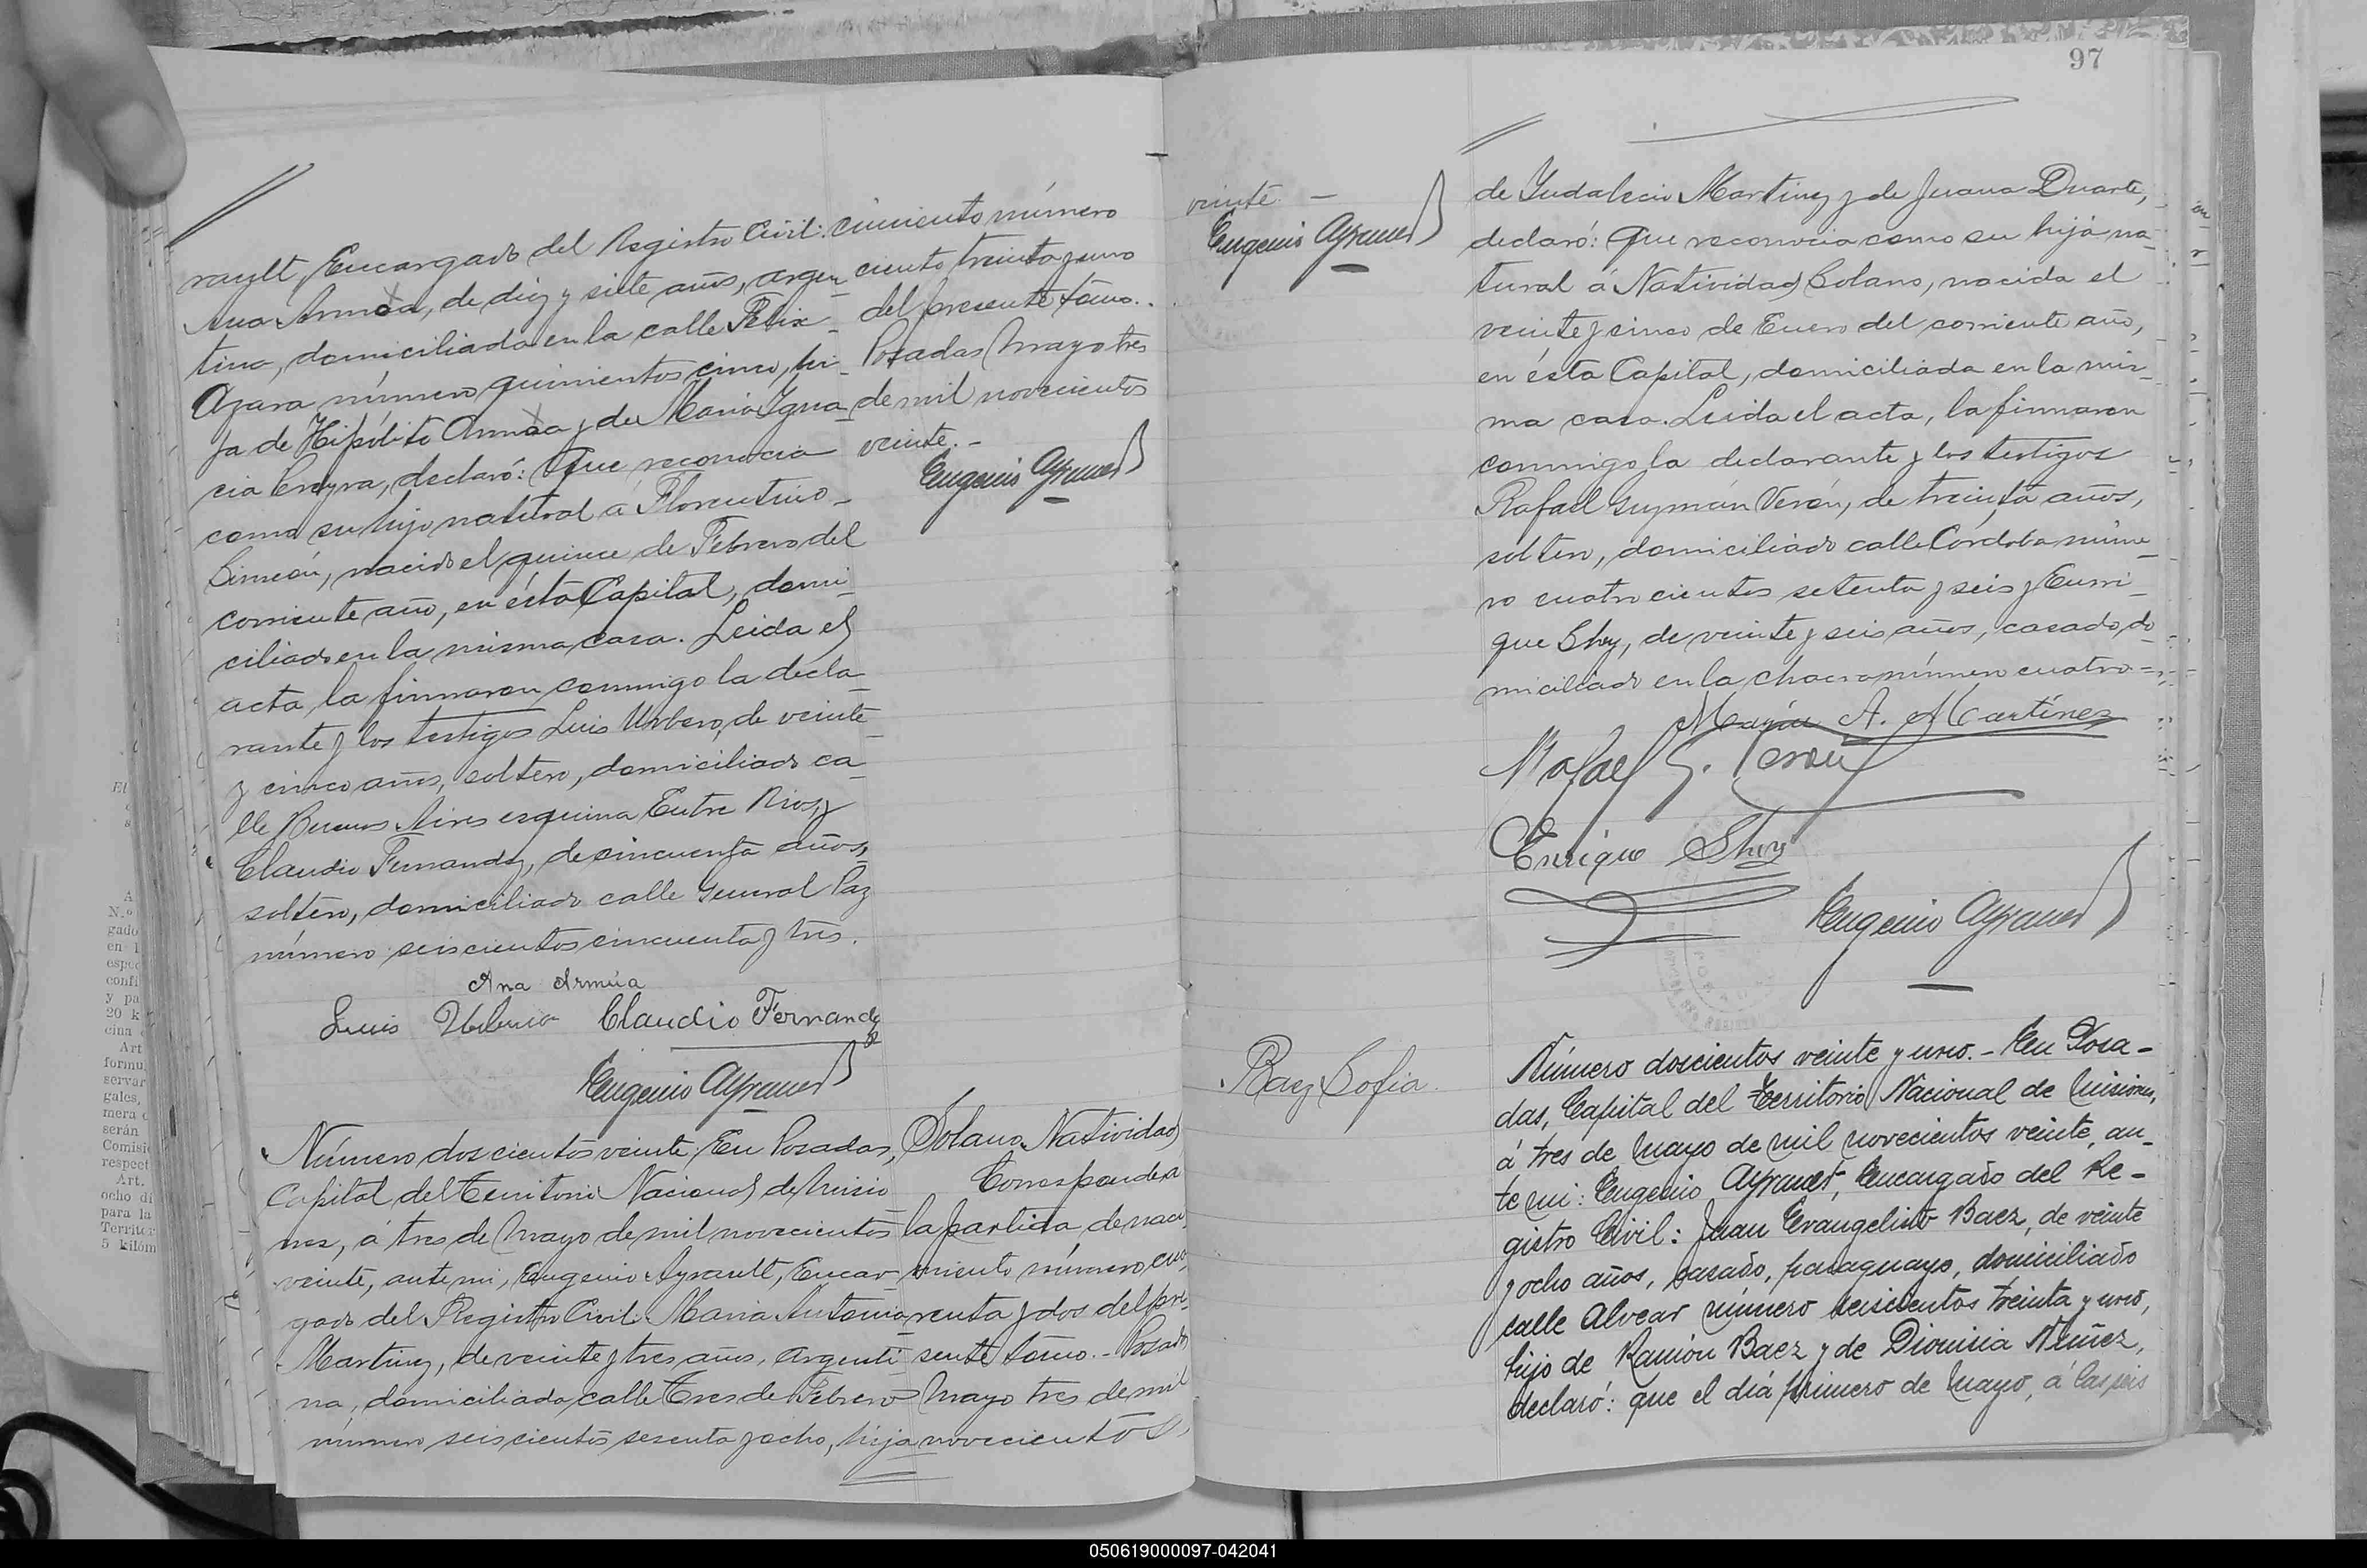 rault, Encargado del Registro Civil:
Ana Armoa, de diez y siete años, argen_
tina, domiciliada en la calle Felix_
Azara número quinientos cinco, hi_
ja de Hipólito Armoa y de Maria Igna_
cia declaró: Que reconocia
como su hijo natural a Florentino_
Simeón, nacido el quince de Febrero del
corriente año, en ésta Capital, domi_
ciliado en la misma casa. Leida el
acta, la firmaron conmigo la decla_
rante y los testigos Luis de veinte_
y cinco años, soltero, domiciliado ca_
lle Buenos Aires esquina Entre Rios, y
Claudio Fernandez, de cincuenta años,
soltero, domiciliado calle General Paz
número seiscientos cincuenta y tres.
Ana Armúa
Luis Claudio Fernandez
Eugenio Ayrault
cimiento número
ciento treinta y uno
del presente tómo.
Posadas Mayo tres
de mil novecientos
veinte.-
Eugenio Ayrault
Número doscientos veinte: En Posadas,
Capital del Territorio Nacional de Misio_
nes, á tres de Mayo de mil novecientos
veinte, ante mi, Eugenio Ayrault, Encar_
gado del Registro Civil: Maria Antonia_
Martinez, de veinte y tres años, argenti_
na, domiciliada calle Tres de Febrero
número seiscientos sesenta y ocho, hija
Solano Natividad
Corresponde a
la partida de naci_
miento número cua_
renta y dos del pre_
sente tómo.- Posadas
Mayo tres de mil
novecientos
97
veinte -
Eugenio Ayrault
de Indalecio Martinez y de Juana Duarte,
declaró: Que reconocia como su hija na_
tural á Natividad Solano, nacida el
veinte y cinco de Enero del corriente año,
en ésta Capital, domiciliada en la mis_
ma casa. Leida el acta, la firmaron
conmigo la declarante y los testigos
Rafael Guzmán Verón, de treinta años,
soltero, domiciliado calle Córdoba núme_
ro cuatrocientos setenta y seis y Enri_
que Shey, de veinte y seis años, casado, do_
miciliado en la chacra número cuatro=
María A. Martínez
Rafael G. Verón
Enrique Shey
Eugenio Ayrault
Baez Sofia.
Número doscientos veinte y uno.- En Posa-
das, Capital del Territorio Nacional de Misiones,
á tres de Mayo de mil novecientos veinte, an_
te mi: Eugenio Ayrault, Encargado del Re-
gistro Civil: Juan Evangelisto Baez, de veinte
y ocho años, casado, paraguayo, domiciliado
calle Alvear número seiscientos treinta y uno,
hijo de Ramón Baez y de Dionisia Núñez,
declaró: que el diá primero de Mayo, á las seis
El
A
N.º
gado
en l
espec
confi
y pa
20 k
cina
Art
formu
servar
gales,
mera
serán
Comisi
respect
Art.
ocho di
para la
Territor
5 kilóm
050619000097-042041